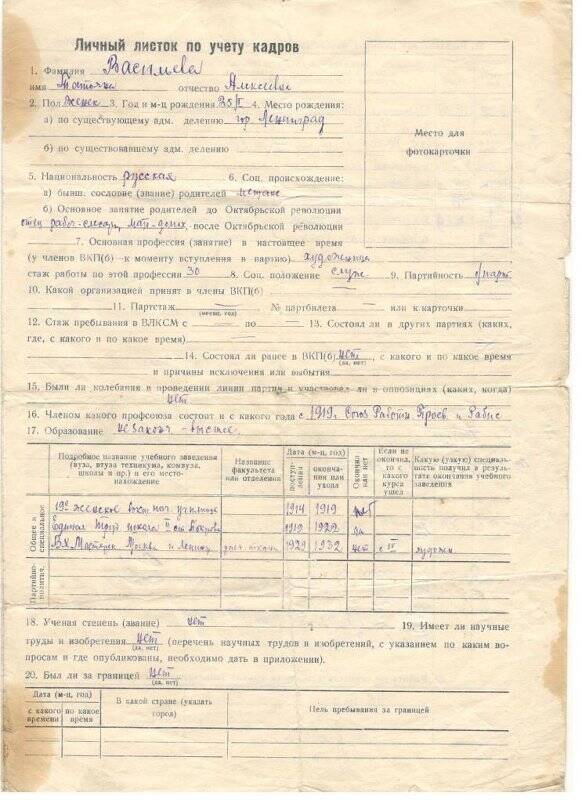 Личный листок по учету кадров
1. Фамилия Васильева
имя Татьяна отчество Алексеевна
2. Пол женск 3. Год и м-ц рождения 25/I 4. Место рождения:
а) по существующему адм. делению гор. Ленинград
б) по существовавшему адм. делению
Место для
фотокарточки
5. Национальность русская 6. Соц. происхождение:
а) бывш. сословие (звание) родителей мещане
б) Основное занятие родителей до Октябрьской революции
отец рабоч-слесарь, мать-домх. после Октябрьской революции
7. Основная профессия (занятие) в настоящее время
(у членов ВКП(б) – к моменту вступления в партию) художница
стаж работы по этой профессии 30 8. Соц. положение служ. 9. Партийность б/парт
10. Какой организацией принят в члены ВКП(б)
11. Партстаж № партбилета или к карточки
(месяц, год)
12. Стаж пребывания в ВЛКСМ с по 13. Состоял ли в других партиях (каких,
где, с какого и по какое время)
14. Состоял ли ранее в ВКП(б) нет, с какого и по какое время
(да, нет)
и причины исключения или выбытия
15. Были ли колебания в проведении линии партии и участвовал ли в оппозициях (каких, когда)
нет
16. Членом какого профсоюза состоит и с какого года с 1919 г. Союз Работн Просв и Рабис
17. Образование незаконч - высшее
Подробное название учебного заведения (вуза, втуза техникума, комвуза, школы и пр.) и его местонахождение
Название факультета или отделения
Дата (м-ц, год)
поступления
окончания или ухода
Окончил или нет
Если не окончил, то с какого курса ушел
Какую (узкую) специальность получил в результате окончания учебного заведения
Общее и специальное
19е женское нач училище 1914 1919
Единая Труд. школа II ст. 1919 1922 да
В.Х. Мастерск Москва и Ленингр 1929 1932 нет с III художн
Партийно-политич.
18. Ученая степень (звание) нет 19. Имеет ли научные
труды и изобретения нет (перечень научных трудов и изобретений, с указанием по каким во-
(да, нет)
просам и где опубликованы, необходимо дать в приложении).
20. Был ли за границей нет
(да, нет)
Дата (м-ц, год)
с какого времени
по какое время
В какой стране (указать город)
Цель пребывания за границей